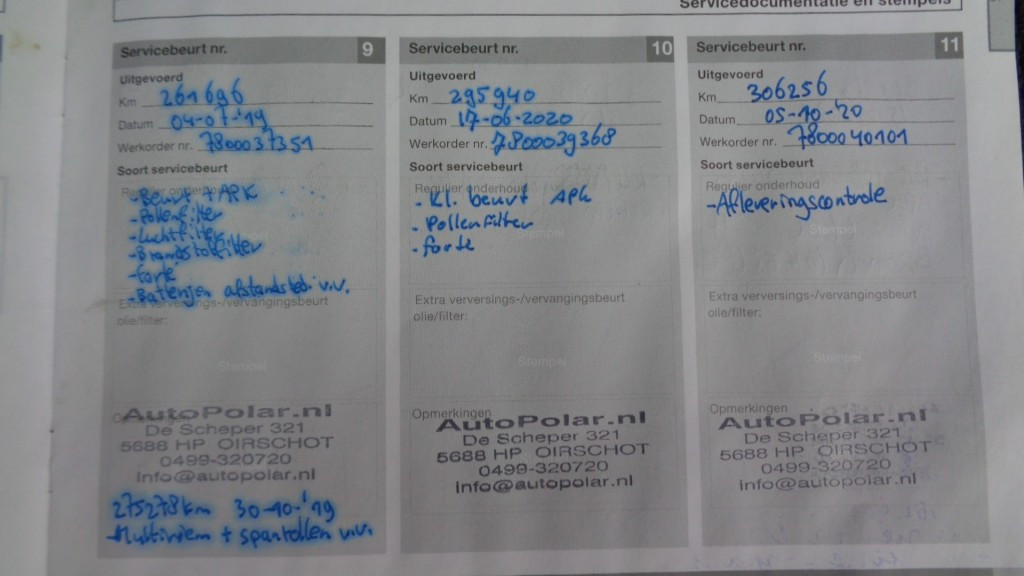 Servicedocumentatie en stempels
Servicebeurt nr. 9
Uitgevoerd
Km 261696
Datum 04-07-'19
Werkorder nr. 7800037351
Soort servicebeurt
Regulier onderhoud
- Beurt + APK
- Pollenfilter
- Luchtfilter
- Brandstoffilter
- forte
- Batterijen afstandsbed. v.v.
Extra verversings-/vervangingsbeurt
olie/filter:
Stempel
AutoPolar.nl
De Scheper 321
5688 HP OIRSCHOT
0499-320720
info@autopolar.nl
275278km 30-10-'19
Multiriem + spanrollen v.v.
Servicebeurt nr. 10
Uitgevoerd
Km 295940
Datum 17-06-2020
Werkorder nr. 7800039368
Soort servicebeurt
Regulier onderhoud
- Kl. beurt APK
- Pollenfilter
- forte
Stempel
Extra verversings-/vervangingsbeurt
olie/filter:
Stempel
Opmerkingen
AutoPolar.nl
De Scheper 321
5688 HP OIRSCHOT
0499-320720
info@autopolar.nl
Servicebeurt nr. 11
Uitgevoerd
Km 306256
Datum 05-10-'20
Werkorder nr. 7800040101
Soort servicebeurt
Regulier onderhoud
- Afleveringscontrole
Stempel
Extra verversings-/vervangingsbeurt
olie/filter:
Stempel
Opmerkingen
AutoPolar.nl
De Scheper 321
5688 HP OIRSCHOT
0499-320720
info@autopolar.nl